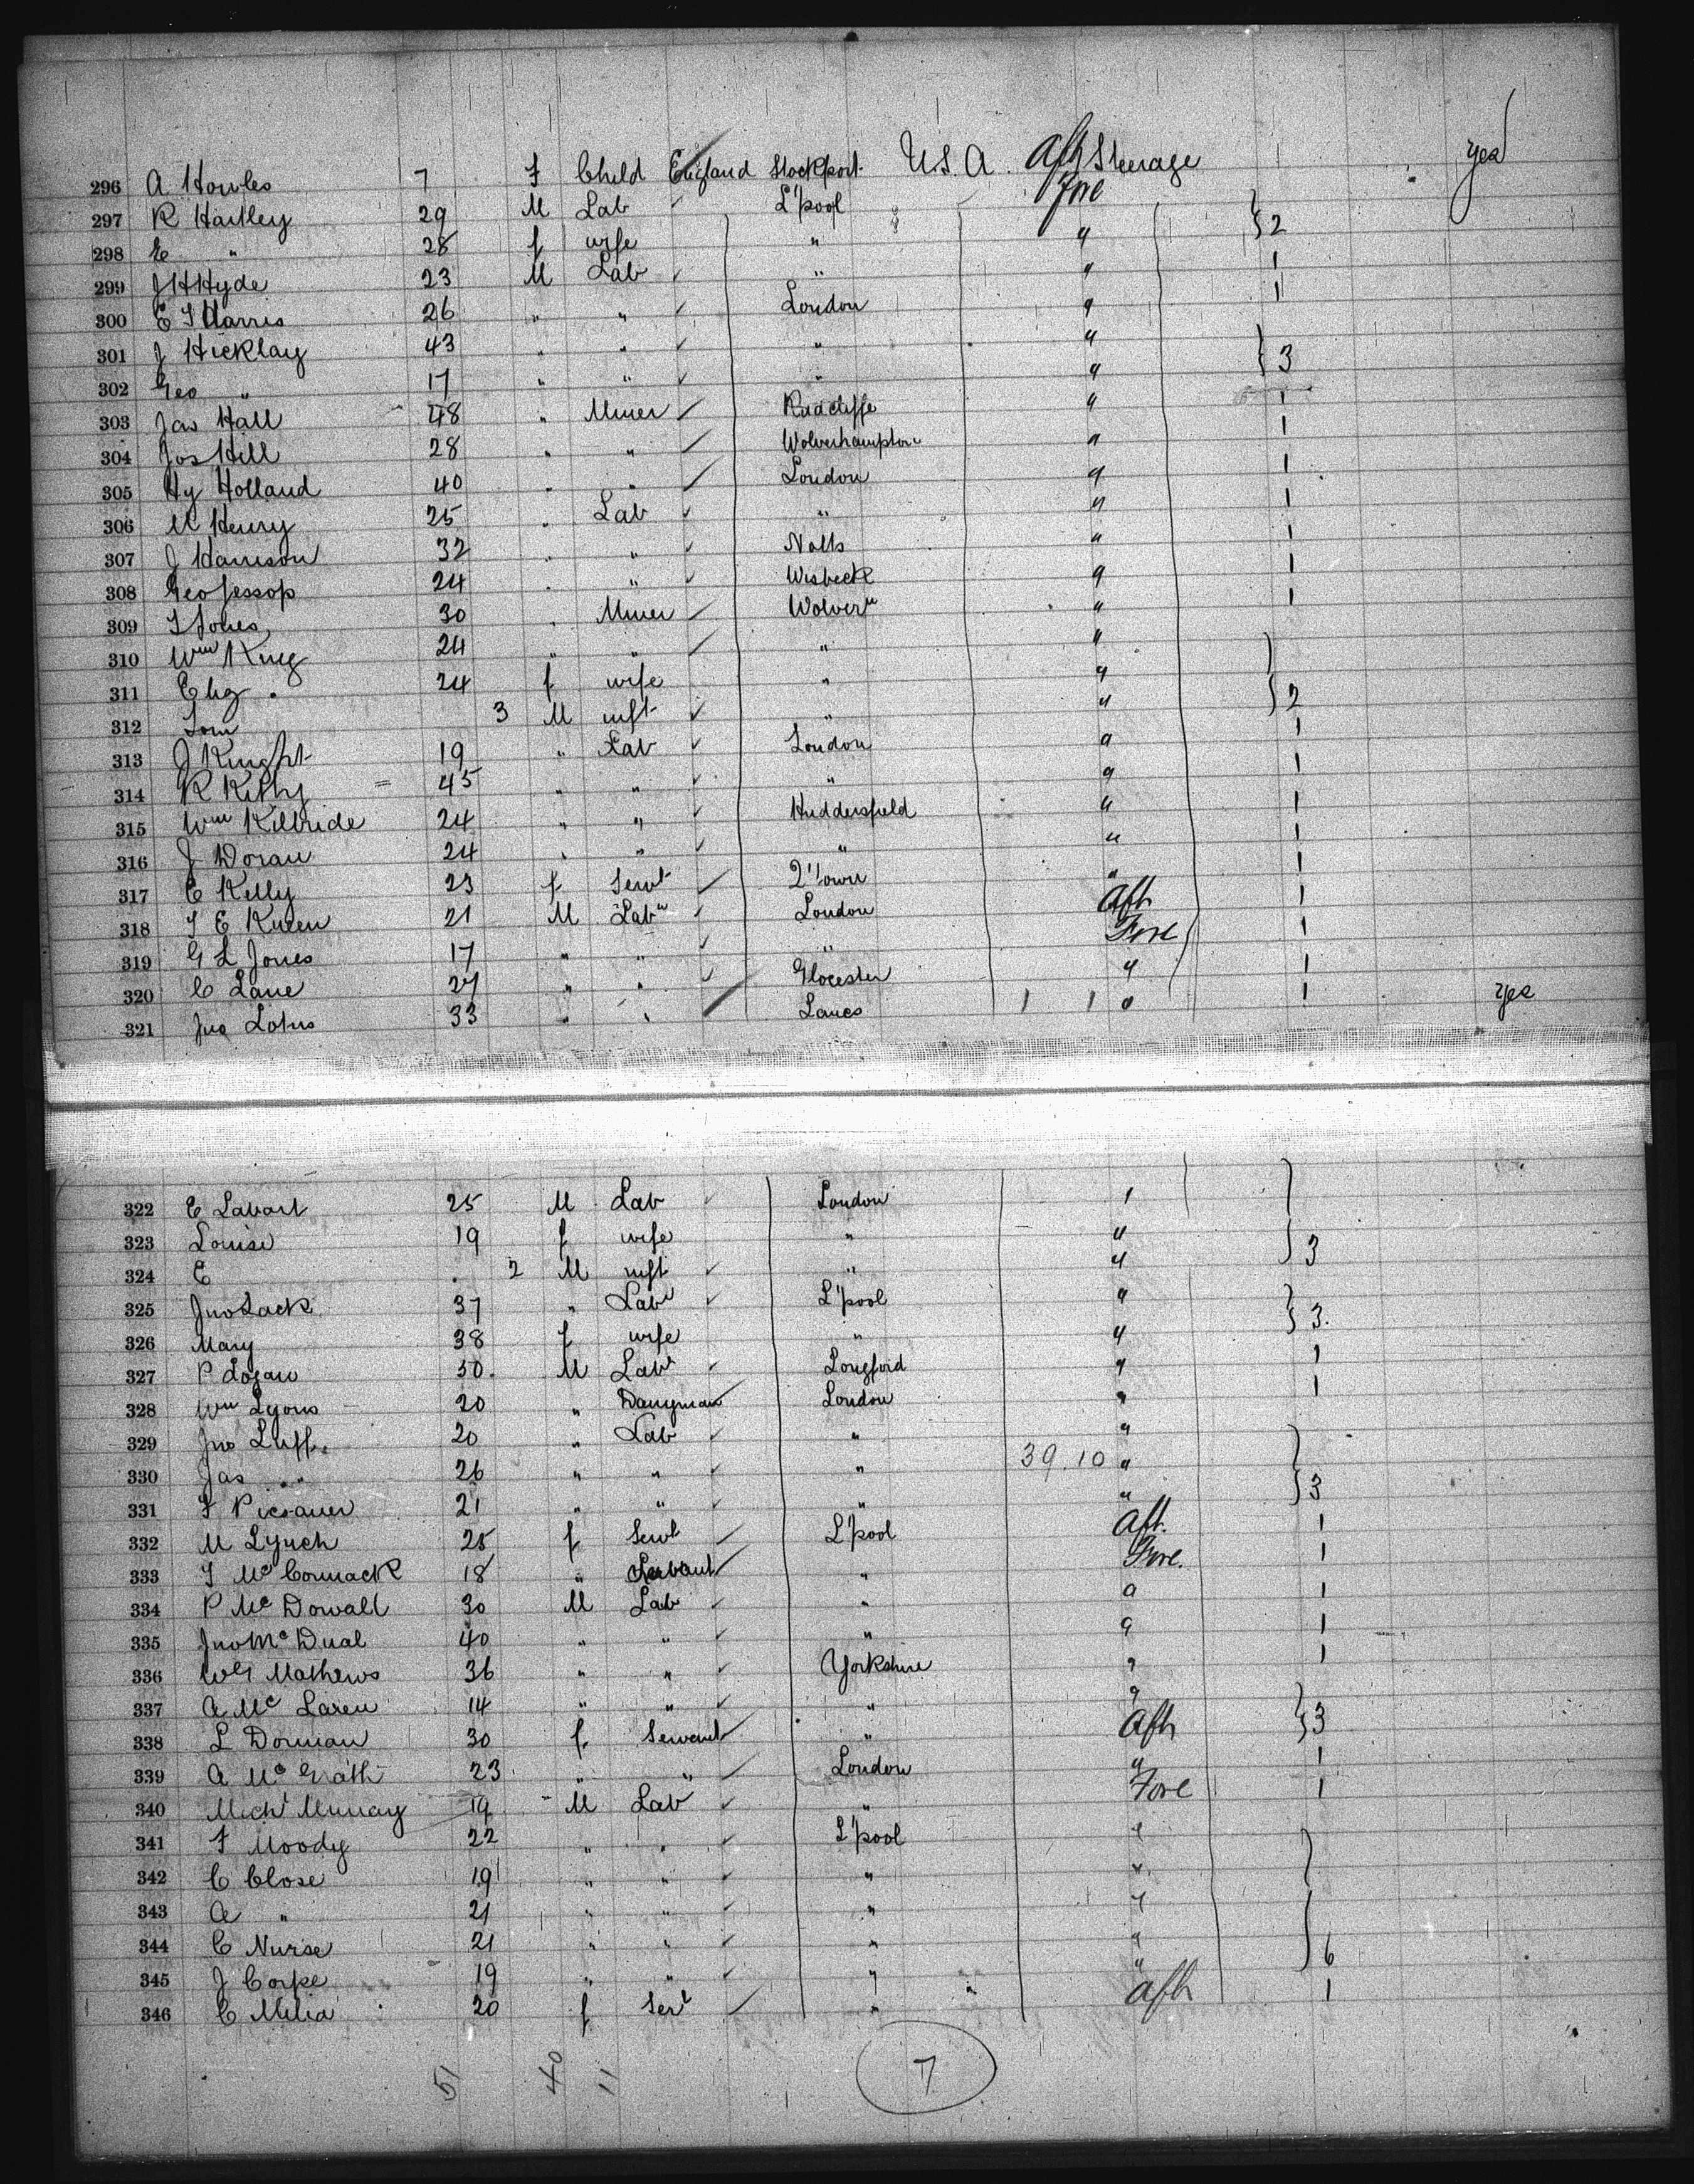 296 A Howles 7 F Child England Stockport U.S.A. Aft Steerage yes
297 R Hartley 29 M Lab L'pool Fore
298 E " 28 f wife " " 2
299 J H Hyde 23 M Lab " " 1
300 E J Harris 26 " " London " 1
301 J Hicklay 43 " " " "
302 Geo " 17 " " " " 3
303 Jas Hall 48 " Miner Radcliffe " 1
304 Jos Hill 28 " " Wolverhampton " 1
305 Hy Holland 40 " " London " 1
306 M Henry 25 " Lab " " 1
307 J Harrison 32 " " Notts " 1
308 Geo Jessop 24 " " Wisbeck " 1
309 J Jones 30 " Miner Wolverm " 1
310 Wm King 24 " " " "
311 Elizg " 24 f wife " "
312 Tom 3 M inft " " 2
313 J Knight 19 " Lab London " 1
314 R 45 " " " " 1
315 Wm Kilbride 24 " " Huddersfield " 1
316 J Doran 24 " " " " 1
317 E Kelly 23 f Servt Q'Town " 1
318 J E 21 M Labr London Aft 1
319 G L Jones 17 " " " Fore 1
320 C Lane 27 " " Glocester " 1
321 Jno 33 " " Lancs 1 1 " 1 yes
322 E Labart 25 M Lab London "
323 Louise 19 f wife " "
324 E 2 M inft " " 3
325 Jno Lack 37 " Labr L'pool "
326 Mary 38 f wife " " 3.
327 P Logan 50. M Labr Longford " 1
328 Wm Lyons 20 " Dairyman London " 1
329 Jno 20 " Lab " "
330 Jas " 26 " " " 39.10 "
331 21 " " " " 3
332 M Lynch 25 f Servt L'pool Aft. 1
333 J McCormack 18 " Servant " Fore. 1
334 P McDowall 30 M Lab " " 1
335 Jno McDual 40 " " " " 1
336 W G Mathews 36 " " Yorkshire " 1
337 A McLaren 14 " " " "
338 L Dornan 30 f. Servant " Aft 3
339 A McGrath 23 " " London " 1
340 Michl Murray 19 M Lab " Fore 1
341 F Moody 22 " " L'pool "
342 C Close 19 " " " "
343 A " 21 " " " "
344 C Nurse 21 " " " "
345 J Corpe 19 " " " " 6
346 C Melia 20 f Servt " Aft 1
51 40 11 7